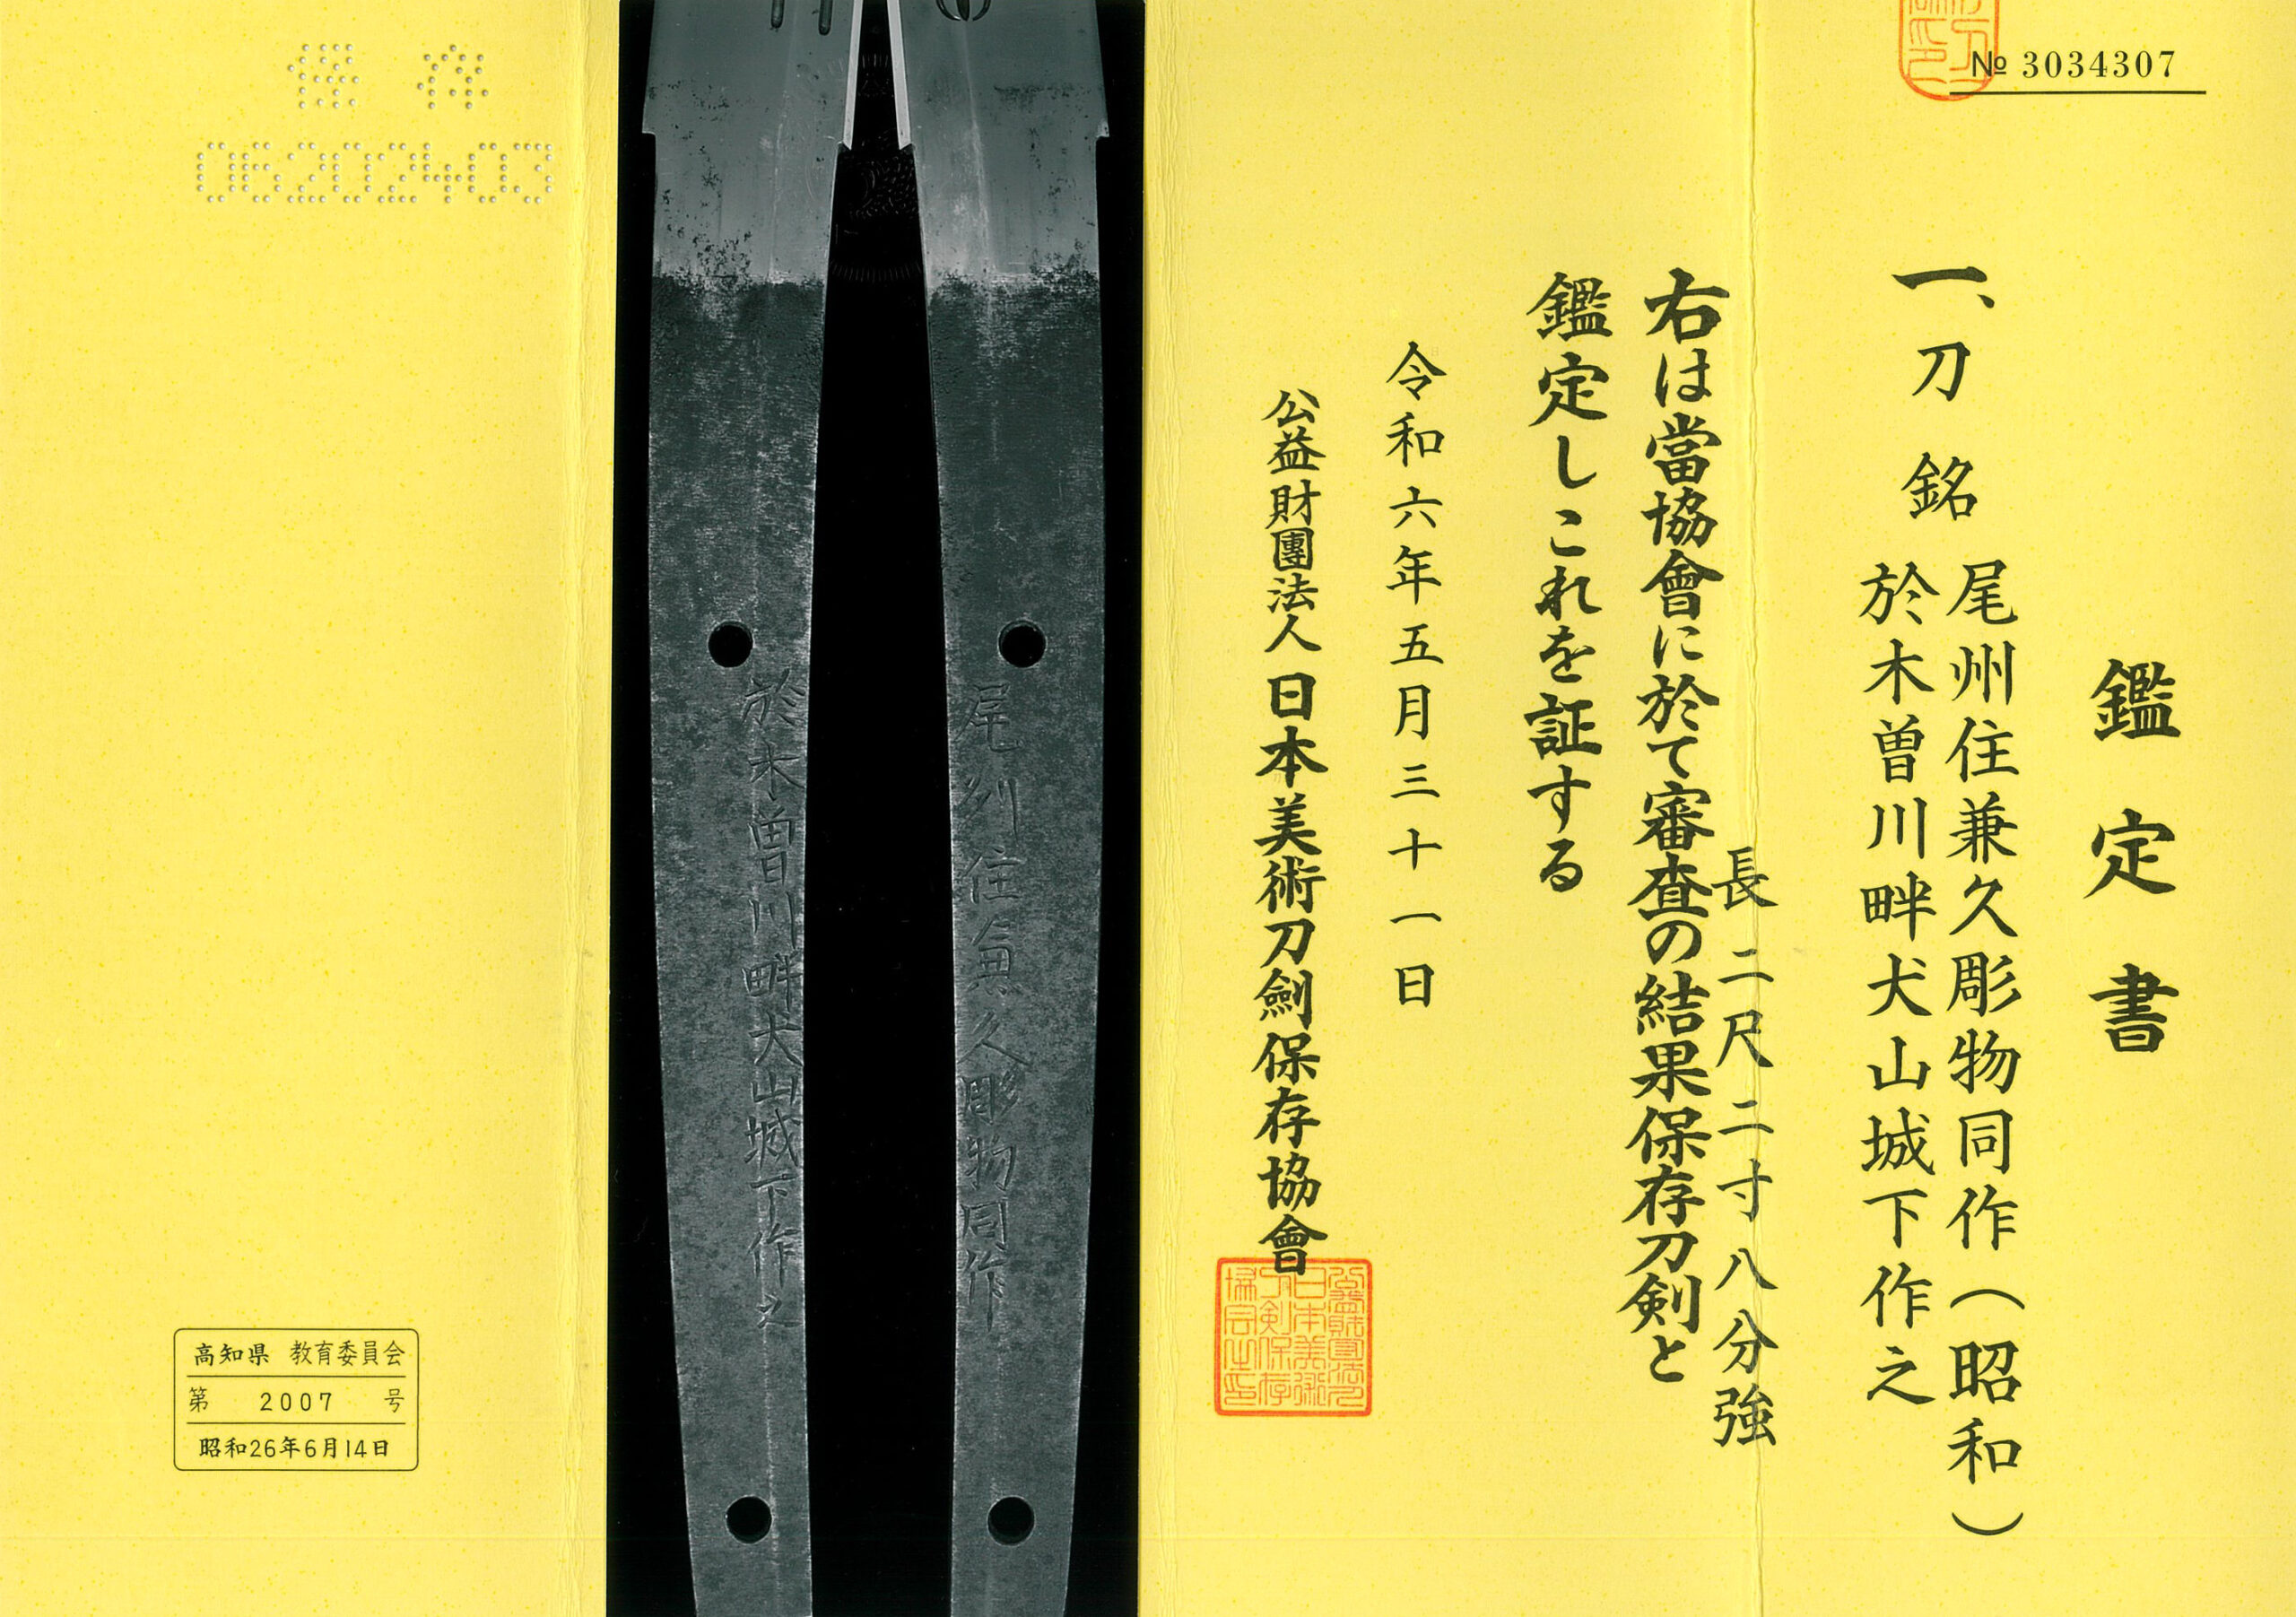 № 3034307
鑑定書
一、刀 銘 尾州住兼久彫物同作（昭和）
於木曽川畔犬山城下作之
長 二尺二寸八分強
右は當協會に於て審査の結果保存刀剣と
鑑定しこれを証する
令和六年五月三十一日
公益財團法人 日本美術刀劍保存協會
尾州住兼久彫物同作
於木曽川畔犬山城下作之
保存
06202403
高知県 教育委員会
第 2007 号
昭和26年6月14日